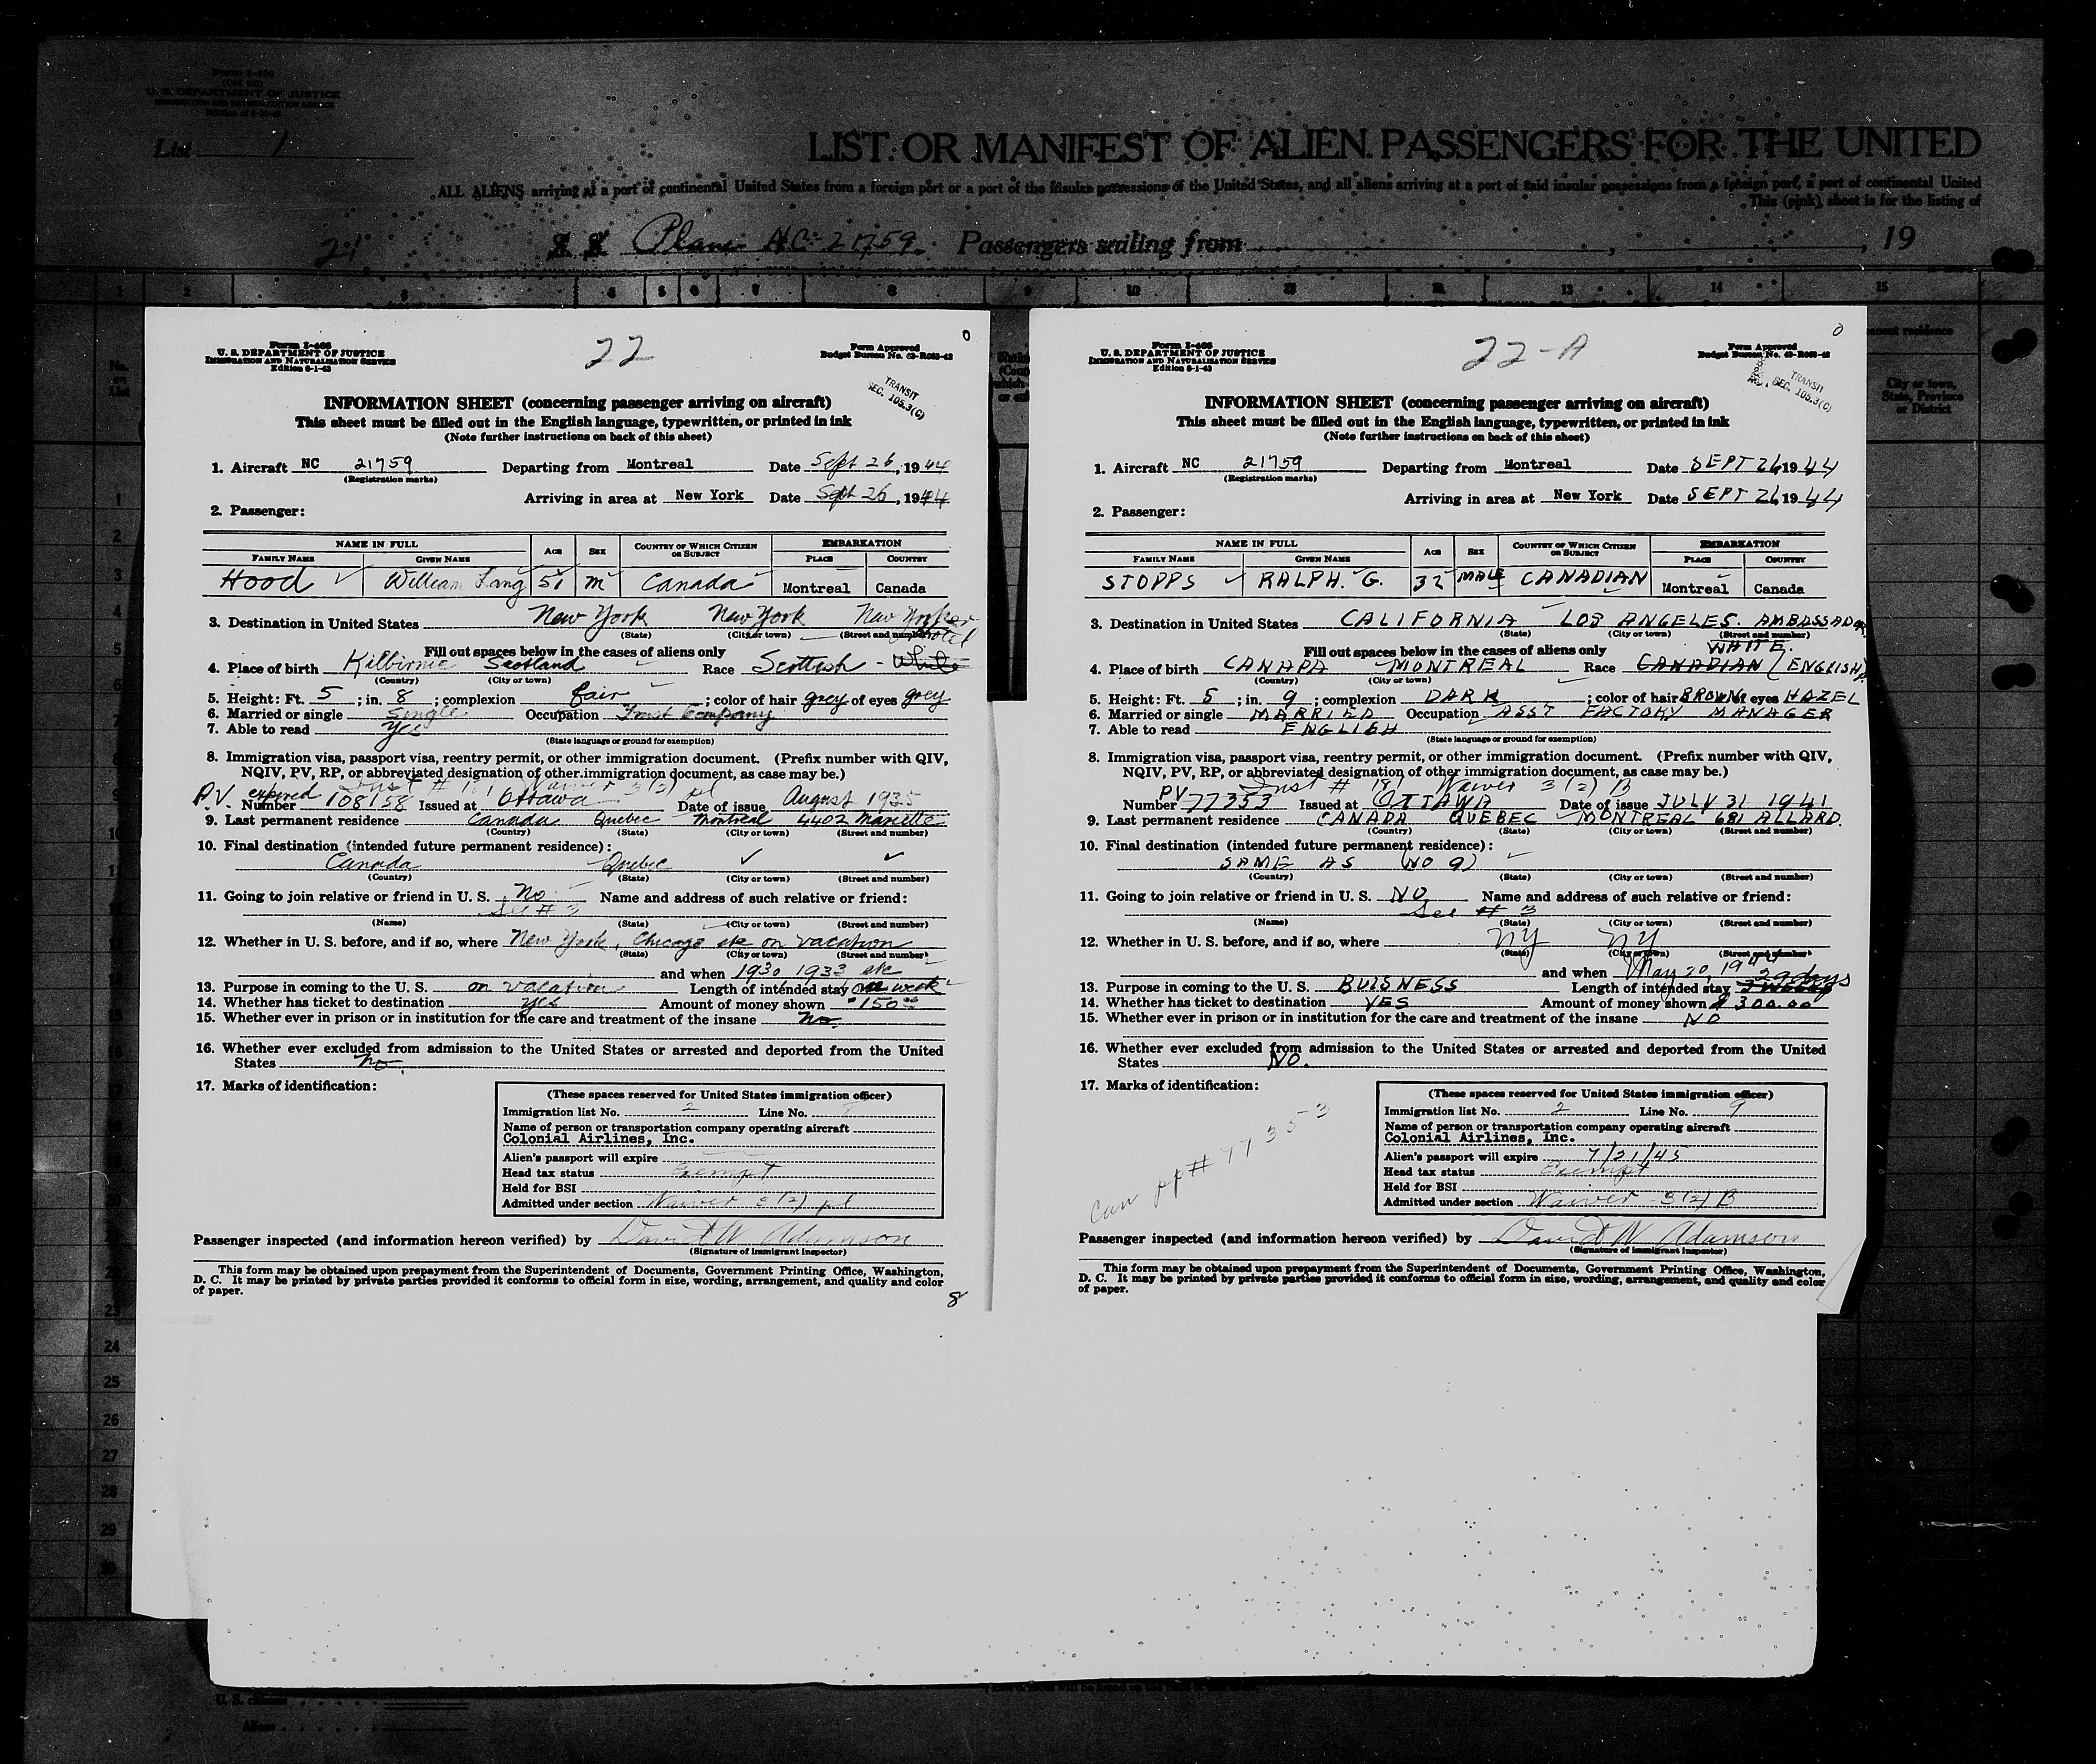 Form I-490
U. S. DEPARTMENT OF JUSTICE
IMMIGRATION AND NATURALIZATION SERVICE
List 1
LIST OR MANIFEST OF ALIEN PASSENGERS FOR THE UNITED
ALL ALIENS arriving at a port of continental United States from a foreign port or a port of the insular possessions of the United States, and all aliens arriving at a port of said insular possessions from a foreign port, a port of continental United
This (pink) sheet is for the listing of
21 Plane NC-21759 Passengers sailing from , 19
1 2 3 4 5 6 7 8 9 10 11 12 13 14 15
Form I-466
U. S. DEPARTMENT OF JUSTICE
IMMIGRATION AND NATURALIZATION SERVICE
Edition 6-1-43
22
Form Approved
Budget Bureau No. 43-R063-42
0
TRANSIT
SEC. 105.3(C)
INFORMATION SHEET (concerning passenger arriving on aircraft)
This sheet must be filled out in the English language, typewritten, or printed in ink
(Note further instructions on back of this sheet)
1. Aircraft NC 21759 Departing from Montreal Date Sept 26, 1944
(Registration marks)
Arriving in area at New York Date Sept 26, 1944
2. Passenger:
NAME IN FULL AGE SEX COUNTRY OF WHICH CITIZEN OR SUBJECT EMBARKATION
FAMILY NAME GIVEN NAME PLACE COUNTRY
Hood William Lang 51 m Canada Montreal Canada
3. Destination in United States New York New York New Yorker Hotel
(State) (City or town) (Street and number)
Fill out spaces below in the cases of aliens only
4. Place of birth Kilbirnie Scotland Race Scottish - White
(Country) (City or town)
5. Height: Ft. 5 ; in. 8 ; complexion fair ; color of hair grey of eyes grey
6. Married or single Single Occupation Trust Company
7. Able to read Yes
(State language or ground for exemption)
8. Immigration visa, passport visa, reentry permit, or other immigration document. (Prefix number with QIV,
NQIV, PV, RP, or abbreviated designation of other immigration document, as case may be.)
Inst # 181 Waiver 3(2) pl
P.V. expired Number 108158 Issued at Ottawa Date of issue August 1935
9. Last permanent residence Canada Quebec Montreal 4402 Mariette
(Country) (State) (City or town) (Street and number)
10. Final destination (intended future permanent residence):
Canada Quebec ✓ ✓
(Country) (State) (City or town) (Street and number)
11. Going to join relative or friend in U. S. No Name and address of such relative or friend:
See # 3
(Name) (State) (City or town) (Street and number)
12. Whether in U. S. before, and if so, where New York, Chicago etc on vacation
(State) (City or town) (Street and number)
and when 1930 1933 etc
13. Purpose in coming to the U. S. on vacation Length of intended stay one week
14. Whether has ticket to destination yes Amount of money shown $150.00
15. Whether ever in prison or in institution for the care and treatment of the insane no.
16. Whether ever excluded from admission to the United States or arrested and deported from the United
States no.
17. Marks of identification:
(These spaces reserved for United States immigration officer)
Immigration list No. 2 Line No. 8
Name of person or transportation company operating aircraft
Colonial Airlines, Inc.
Alien's passport will expire
Head tax status Exempt
Held for BSI
Admitted under section Waiver 3(2) pl
Passenger inspected (and information hereon verified) by David W Adamson
(Signature of immigrant inspector)
This form may be obtained upon prepayment from the Superintendent of Documents, Government Printing Office, Washington,
D. C. It may be printed by private parties provided it conforms to official form in size, wording, arrangement, and quality and color
of paper.
8
Form I-466
U. S. DEPARTMENT OF JUSTICE
IMMIGRATION AND NATURALIZATION SERVICE
Edition 6-1-43
22-A
Form Approved
Budget Bureau No. 43-R063-42
0
TRANSIT
SEC. 105.3(C)
INFORMATION SHEET (concerning passenger arriving on aircraft)
This sheet must be filled out in the English language, typewritten, or printed in ink
(Note further instructions on back of this sheet)
1. Aircraft NC 21759 Departing from Montreal Date SEPT 26 1944
(Registration marks)
Arriving in area at New York Date SEPT 26, 1944
2. Passenger:
NAME IN FULL AGE SEX COUNTRY OF WHICH CITIZEN OR SUBJECT EMBARKATION
FAMILY NAME GIVEN NAME PLACE COUNTRY
STOPPS RALPH. G. 32 MALE CANADIAN Montreal Canada
3. Destination in United States CALIFORNIA LOS ANGELES. AMBASSADOR
(State) (City or town) (Street and number)
Fill out spaces below in the cases of aliens only WHITE.
4. Place of birth CANADA MONTREAL Race CANADIAN (ENGLISH)
(Country) (City or town)
5. Height: Ft. 5 ; in. 9 ; complexion DARK ; color of hair BROWN of eyes HAZEL
6. Married or single MARRIED Occupation ASST FACTORY MANAGER
7. Able to read ENGLISH
(State language or ground for exemption)
8. Immigration visa, passport visa, reentry permit, or other immigration document. (Prefix number with QIV,
NQIV, PV, RP, or abbreviated designation of other immigration document, as case may be.)
Inst # 181 Waiver 3(2) B
PV Number 77353 Issued at OTTAWA Date of issue JULY 31 1941
9. Last permanent residence CANADA QUEBEC MONTREAL 681 ALLARD.
(Country) (State) (City or town) (Street and number)
10. Final destination (intended future permanent residence):
SAME AS (NO 9)
(Country) (State) (City or town) (Street and number)
11. Going to join relative or friend in U. S. NO Name and address of such relative or friend:
See # 3
(Name) (State) (City or town) (Street and number)
12. Whether in U. S. before, and if so, where NY NY
(State) (City or town) (Street and number)
and when May 20, 1944
13. Purpose in coming to the U. S. BUISNESS Length of intended stay 29 days
14. Whether has ticket to destination YES Amount of money shown $300.00
15. Whether ever in prison or in institution for the care and treatment of the insane NO
16. Whether ever excluded from admission to the United States or arrested and deported from the United
States NO.
17. Marks of identification:
Can pp# 77353
(These spaces reserved for United States immigration officer)
Immigration list No. 2 Line No. 9
Name of person or transportation company operating aircraft
Colonial Airlines, Inc.
Alien's passport will expire 7/31/45
Head tax status Exempt
Held for BSI
Admitted under section Waiver 3(2) B
Passenger inspected (and information hereon verified) by David W Adamson
(Signature of immigrant inspector)
This form may be obtained upon prepayment from the Superintendent of Documents, Government Printing Office, Washington,
D. C. It may be printed by private parties provided it conforms to official form in size, wording, arrangement, and quality and color
of paper.
City or town,
State, Province
or District
No.
on
List
1
2
3
4
5
6
24
25
26
27
28
29
30
U. S. citizens
Aliens